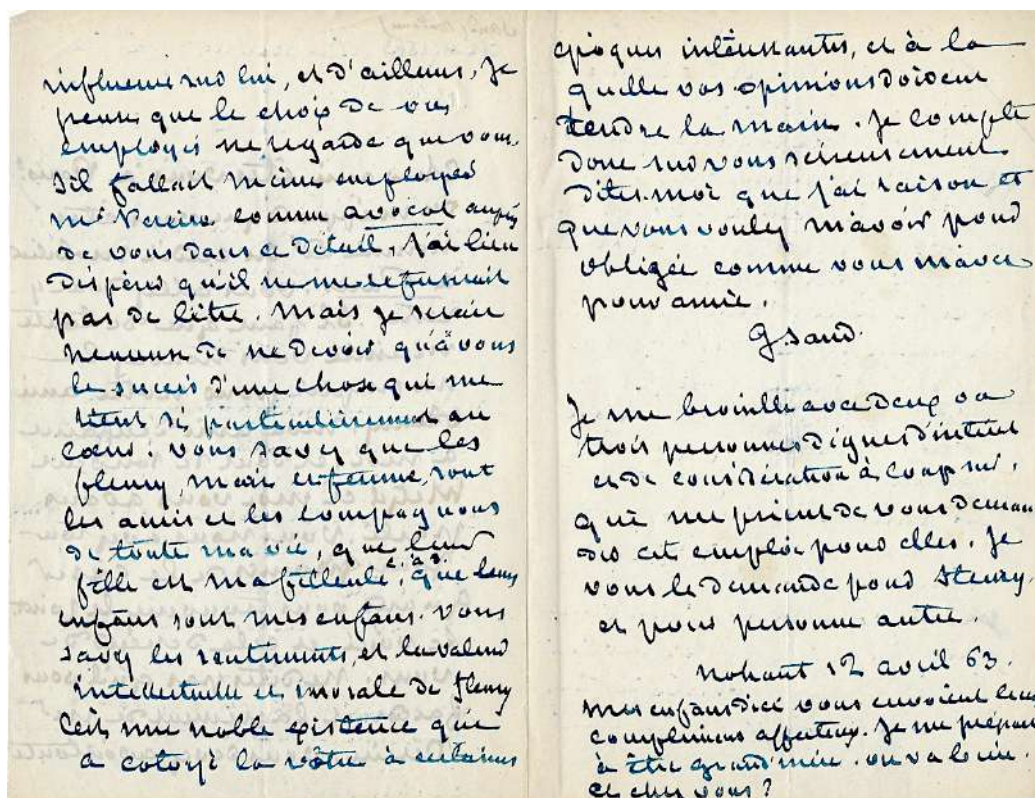 influence sur lui, et d'ailleurs, je
pense que le choix de vos
employés ne regarde que vous.
S'il fallait même employer
Mr Pereire comme avocat auprès
de vous dans ce détail, j'ai lieu
d'espérer qu'il ne me refuserait
pas de l'être. Mais je serais
heureuse de ne devoir qu'à vous
le succès d'une chose qui me
tient si particulièrement au
cœur. Vous savez que les
fleury mari et femme, sont
les amis et les compagnons
de toute ma vie, que leur
fille est ma filleule, c. à. d. que leurs
enfans sont mes enfans. Vous
savez les sentiments, et la valeur
intellectuelle et morale de fleury
C'est une noble existence qui
a cotoyé la vôtre à certaines
époques intéressantes, et à la
quelle vos opinions doivent
tendre la main. Je compte
donc sur vous sérieusement
dites-moi que j'ai raison et
que vous voulez m'avoir pour
obligée comme vous m'avez
pour amie.
G. Sand.
Je me brouille avec deux ou
trois personnes dignes d'intérêt
et de considération à coup sûr,
qui me prient de vous deman
der cet emploi pour elles. Je
vous le demande pour fleury.
et pour personne autre.
Nohant 12 avril 63.
Mes enfans d'ici vous envoient leurs
complimens affectueux. Je me prépare
à être grand'mère. On va bien.
et chez vous?